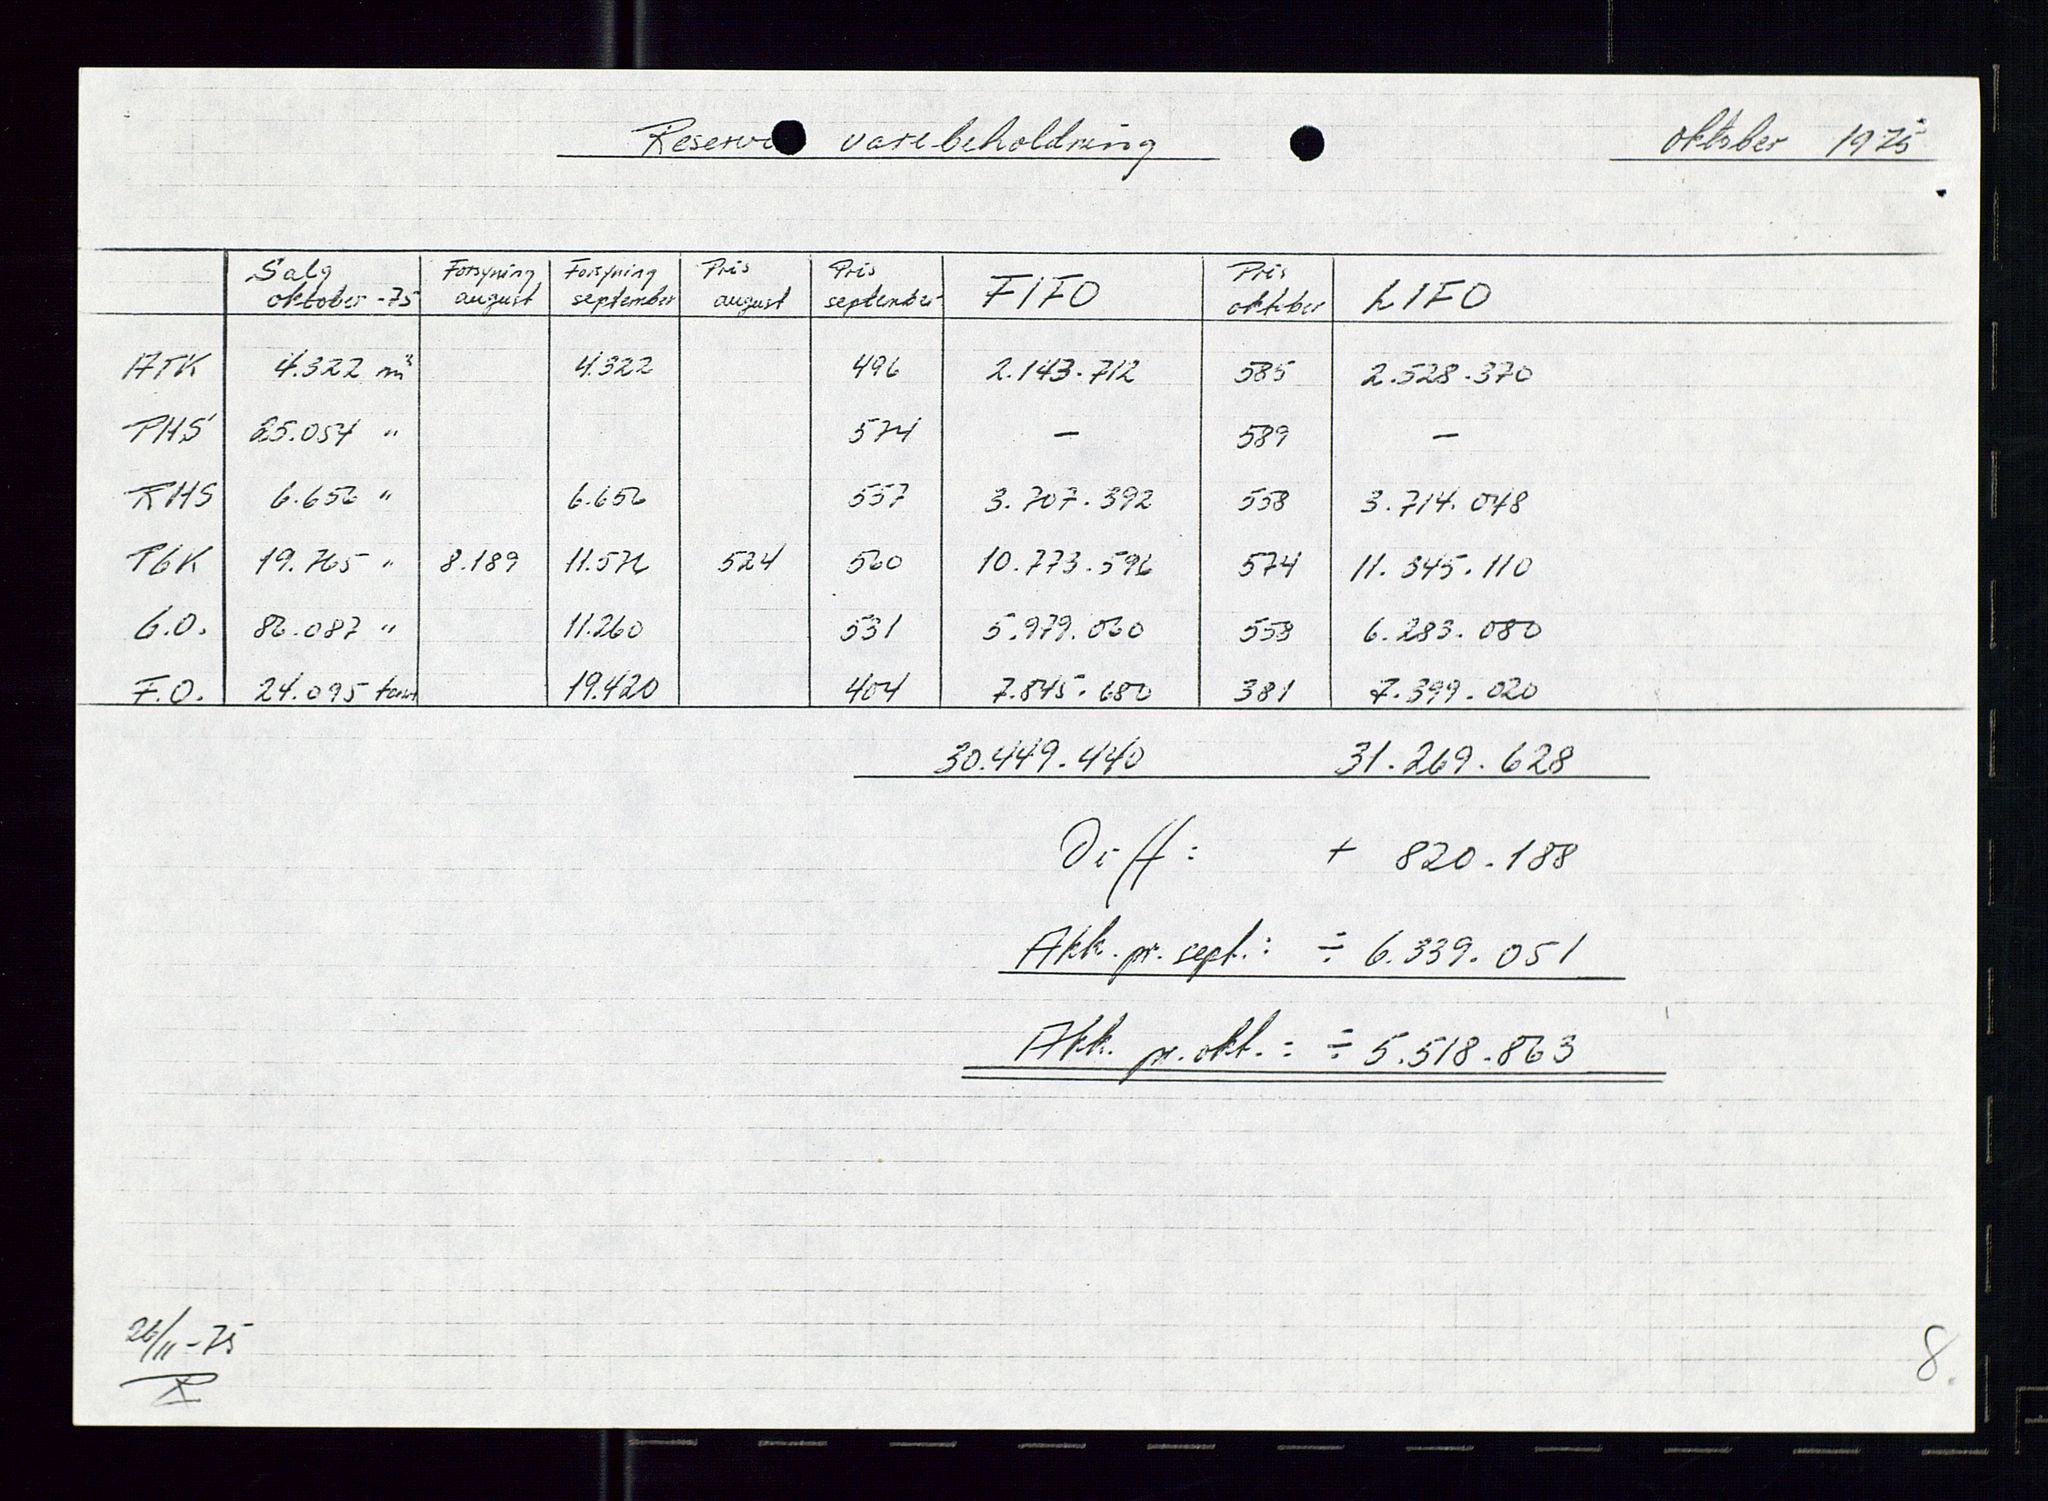 Reserve varebeholdning oktober 1975
Salg oktober -75 Forsyning august Forsyning september Pris august Pris september FIFO Pris oktober LIFO
ATK 4.322 m³ 4.322 496 2.143.712 585 2.528.370
PHS 25.054 " 574 – 589 –
RHS 6.656 " 6.656 557 3.707.392 558 3.714.048
PGK 19.765 " 8.189 11.576 524 560 10.773.596 574 11.345.110
G.O. 86.087 " 11.260 531 5.979.060 558 6.283.080
F.O. 24.095 tonn 19.420 404 7.845.680 381 7.399.020
30.449.440 31.269.628
Diff: + 820.188
Akk. pr. sept.: ÷ 6.339.051
Akk. pr. okt.: ÷ 5.518.863
26/11-75
8.